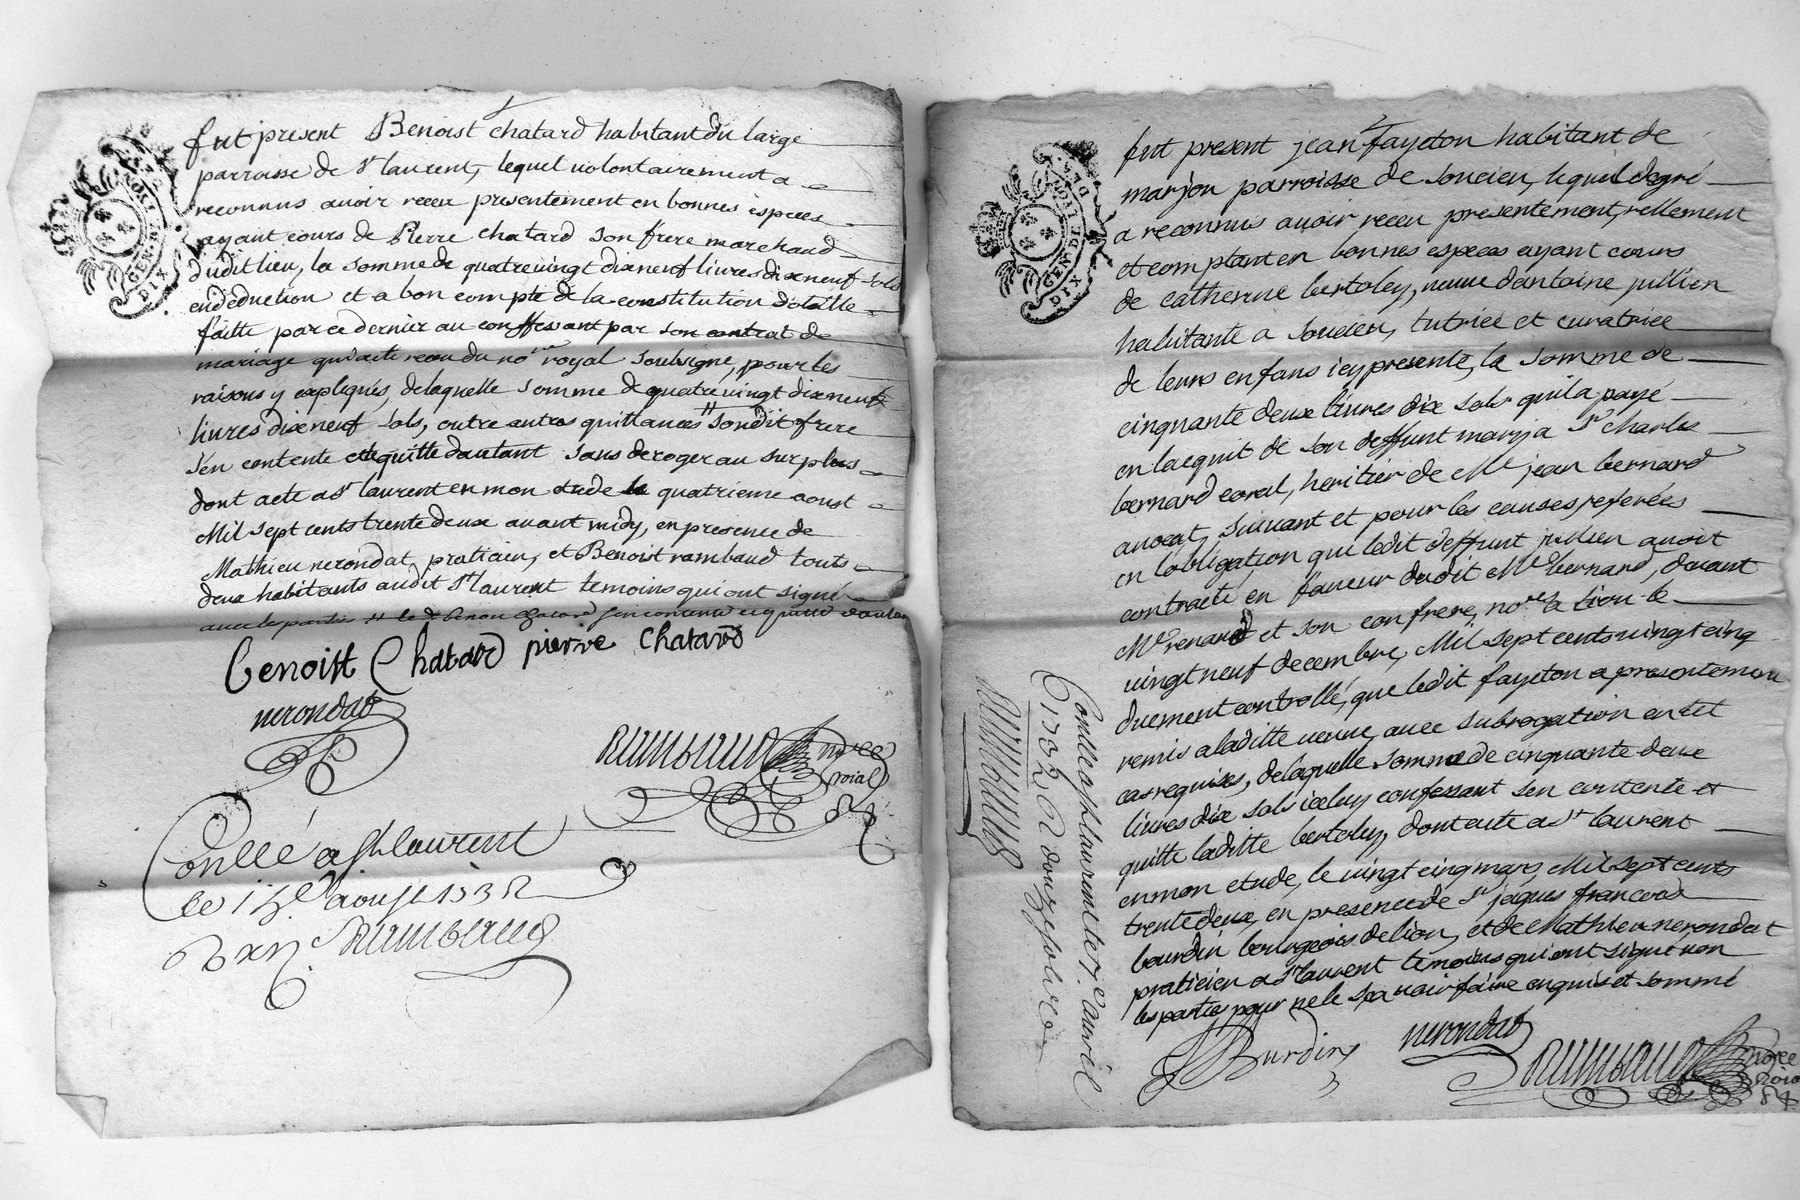 GEN. DE LYON
DIX D
fut present Benoist chatard habitant du large
parroisse de st laurent, lequel volontairement a
reconnus avoir receu presentement en bonnes especes
ayant cours de Pierre chatard son frere marchand
dudit lieu, la somme de quatrevingt dixneuf livres dixneuf sols
en deduction et a bon compte de la constitution dotalle
faitte par ce dernier au confessant par son contrat de
mariage qu'a receu du nore royal soubsigné, pour les
raisons y expliqués, de laquelle somme de quatrevingt dixneuf
livres dixneuf sols, outre autres quittances sondit frere
s'en contente et quitte d'autant sans deroger au surplus
dont acte a st laurent en mon etude le quatrieme aoust
Mil sept cents trente deux avant midy, en presence de
Mathieu nerondat praticien, et Benoist rambaud touts
deux habitants audit st laurent temoins qui ont signé
avec les parties led Benoist chatard s'en contente et quitte d'autant
benoist Chatard pierre chatard
nerondat
Rambaud nore
roial
Conllé a st laurent
le 15e aoust 1732
Rambaud
GEN. DE LYON
DIX D
fut present jean fayeton habitant de
marjon parroisse de soucieu, lequel de gré
a reconnus avoir receu presentement, reellement
et comptant en bonnes especes ayant cours
de catherine bertoley, veuve d'antoine jullien
habitante a soucieu, tutrice et curatrice
de leurs enfans icy presente, la somme de
cinquante deux livres dix sols qu'il a payé
en l'acquit de son deffunt mary a sr charles
bernard coral, heritier de Me jean bernard
avocat, suivant et pour les causes referées
en l'obligation que ledit deffunt jullien avoit
contracté en faveur dudit Me bernard, devant
Me renaud et son confrere, nores a Lion le
vingt neuf decembre, Mil sept cents vingt cinq
duement controllé, que ledit fayeton a presentement
remis a laditte veuve, avec subrogation en tel
cas requises, de laquelle somme de cinquante deux
livres dix sols iceluy confessant s'en contente et
quitte laditte bertoley, dont acte a st laurent
en mon etude, le vingt cinq mars, Mil sept cents
trente deux, en presence de sr jaques francois
bourdin bourgeois de lion, et de Mathieu nerondat
praticien a st laurent temoins qui ont signé non
les parties pour ne le scavoir faire enquis et sommé
Burdin nerondat
Rambaud nore
roial
Conllé a st laurent le 7e avril
1732 R douze sols
Rambaud